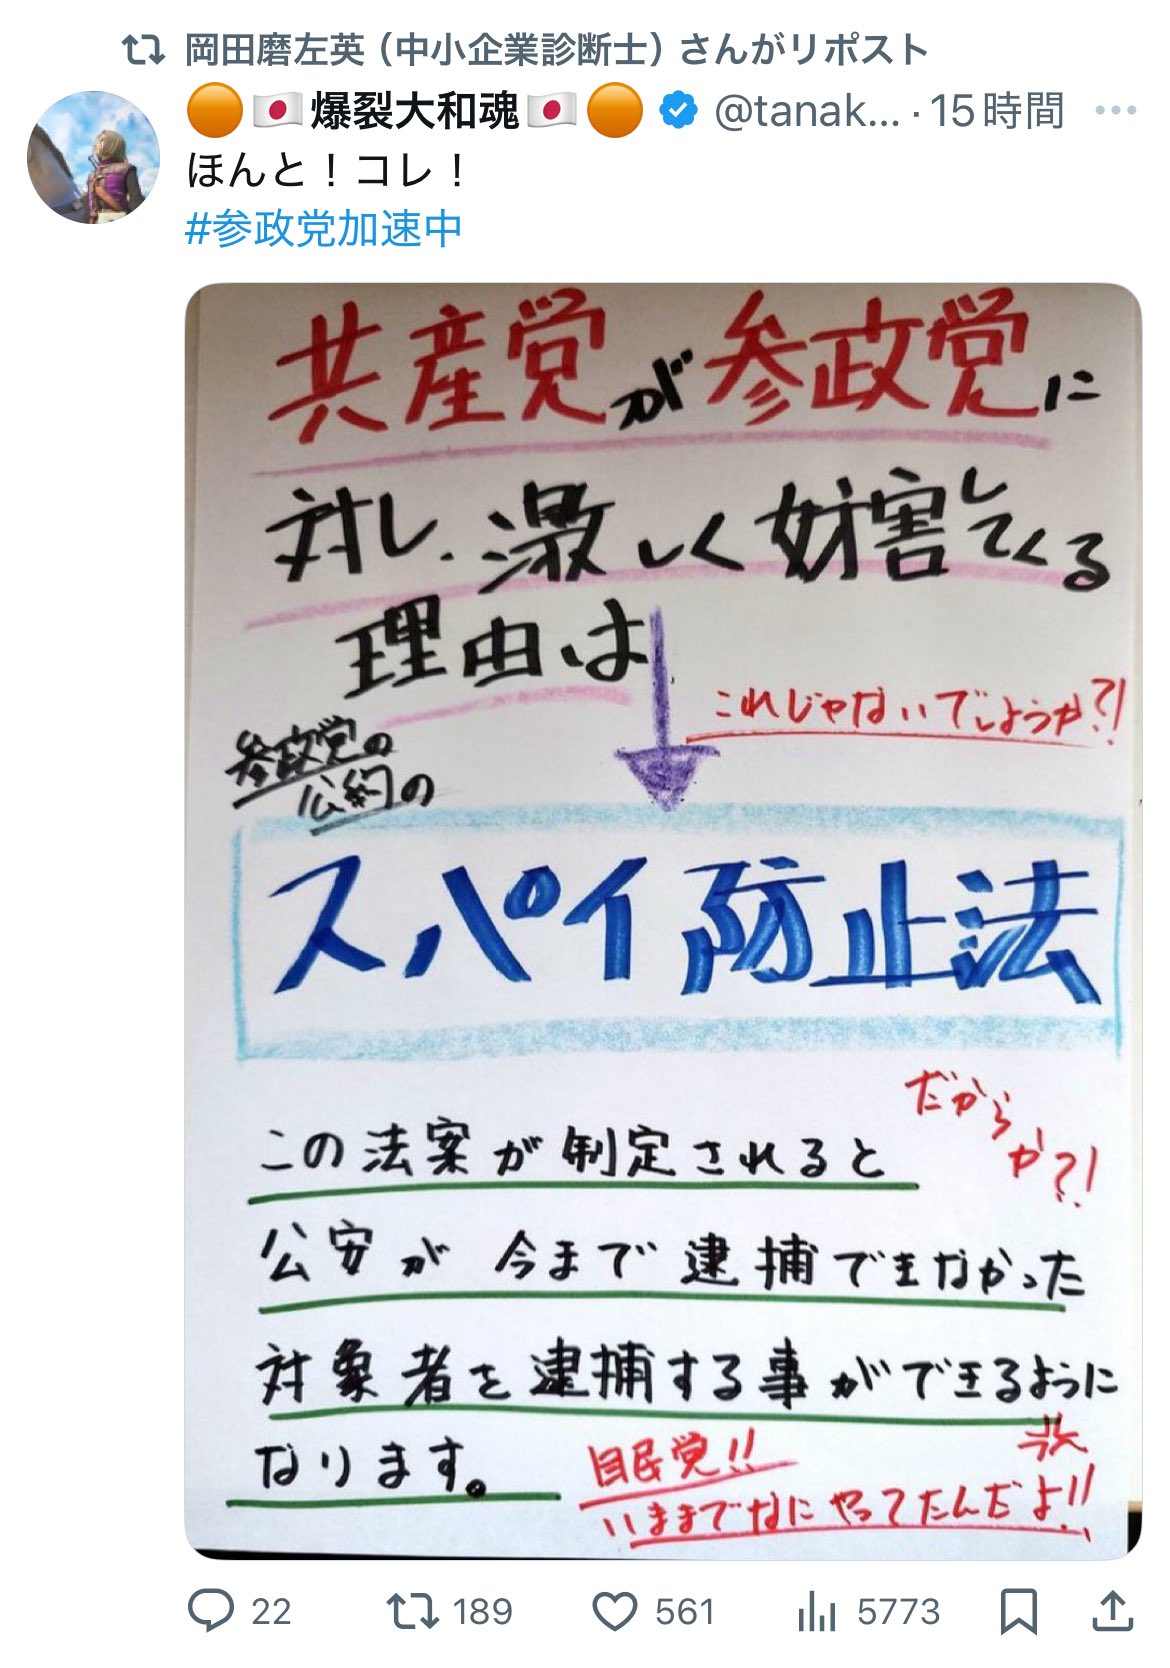 岡田磨左英（中小企業診断士）さんがリポスト
🟠🇯🇵爆裂大和魂🇯🇵🟠 @tanak... · 15時間
ほんと！コレ！
#参政党加速中
共産党が参政党に
対し、激しく妨害してくる
理由は
これじゃないでしょうか?!
参政党の
公約の
スパイ防止法
だからか?!
この法案が制定されると
公安が今まで逮捕できなかった
対象者を逮捕する事ができるように
なります。
自民党!!
いままでなにやってたんだよ!!
22 189 561 5773